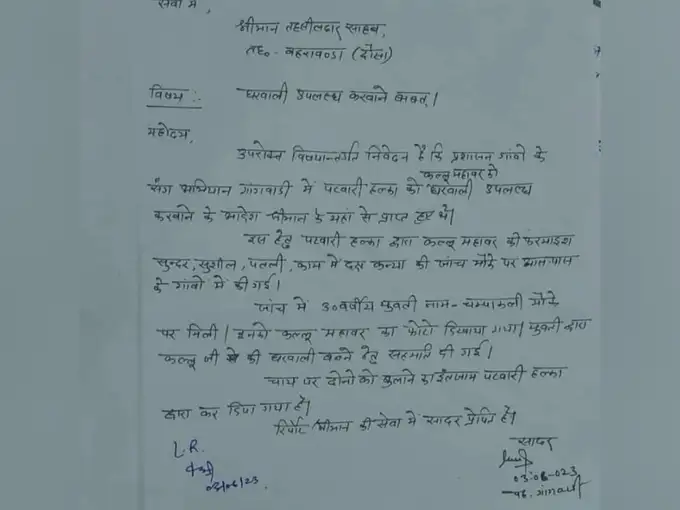 सेवा में,
श्रीमान तहसीलदार साहब,
तह०- बहरावण्डा (दौसा)
विषय :- घरवाली उपलब्ध करवाने बाबत्।
महोदय,
उपरोक्त विषयान्तर्गत निवेदन है कि प्रशासन गांवो के
कल्लू महावर को
संग अभियान गांगदवाडी में पटवारी हल्का को घरवाली उपलब्ध
करवाने के आदेश श्रीमान के यहां से प्राप्त हुए थे।
इस हेतु पटवारी हल्का द्वारा कल्लू महावर की फरमाइश
सुन्दर, सुशील, पतली, काम में दक्ष कन्या की जांच मौके पर आस-पास
के गांवो में की गई।
जांच में 30 वर्षीय युवती नाम - चम्पाकली मौके
पर मिली। इनको कल्लू महावर का फोटो दिखाया गया। युवती द्वारा
कल्लू जी की घरवाली बनने हेतु सहमति दी गई।
चाय पर दोनो को बुलाने का इंतजाम पटवारी हल्का
द्वारा कर दिया गया है।
रिपोर्ट श्रीमान की सेवा में सादर प्रेषित है।
सादर
L.R.
03/06/23
03-06-023